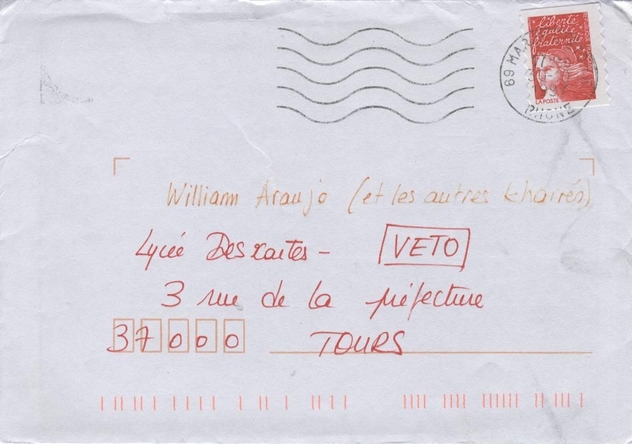 liberté
égalité
fraternité
LA POSTE
69 MAR
RHONE
William Araujo (et les autres khairés)
Lycée Descartes - VETO
3 rue de la préfecture
37000 TOURS